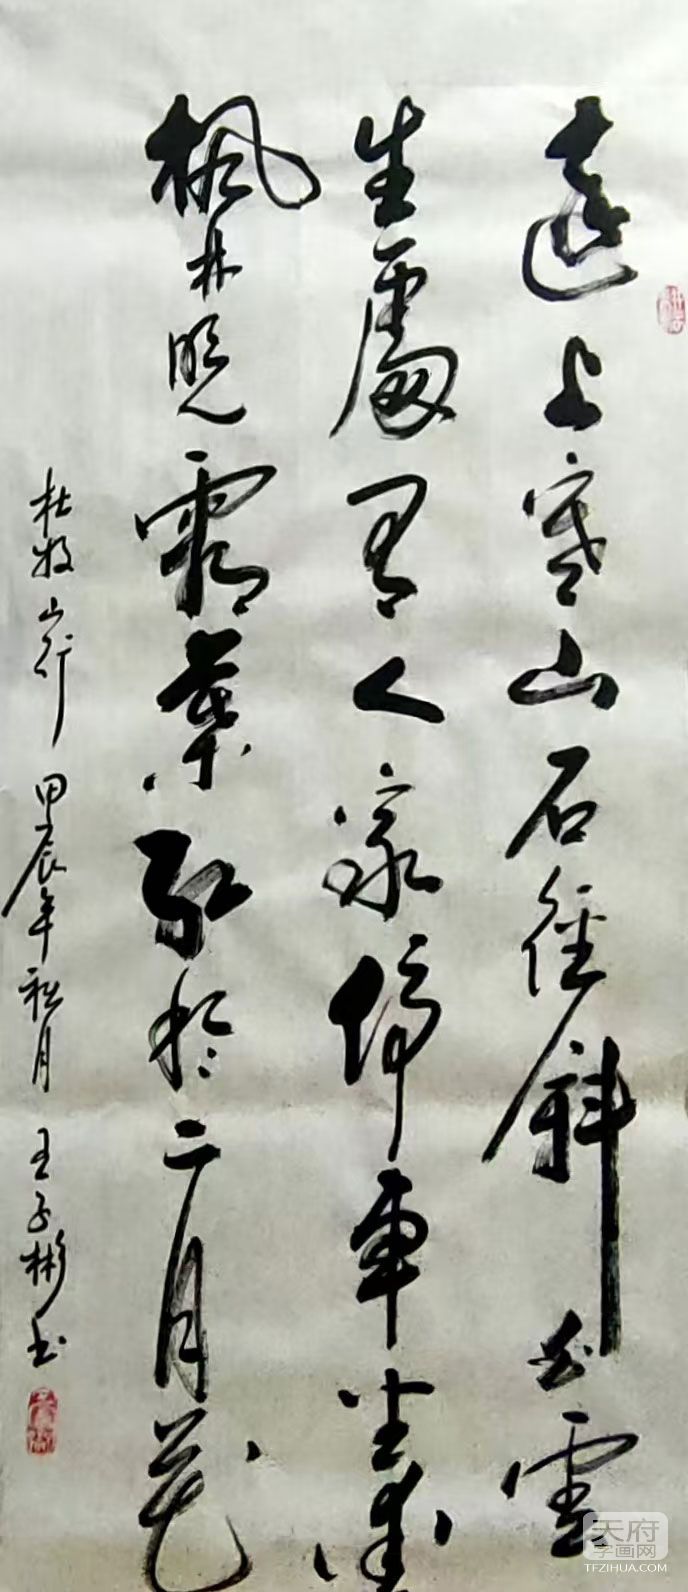 遠上寒山石徑斜白雲
生處有人家停車坐愛
楓林晚霜葉紅於二月花
杜牧山行 甲辰年秋月 王子彬書
天府
字画网
TFZIHUA.COM